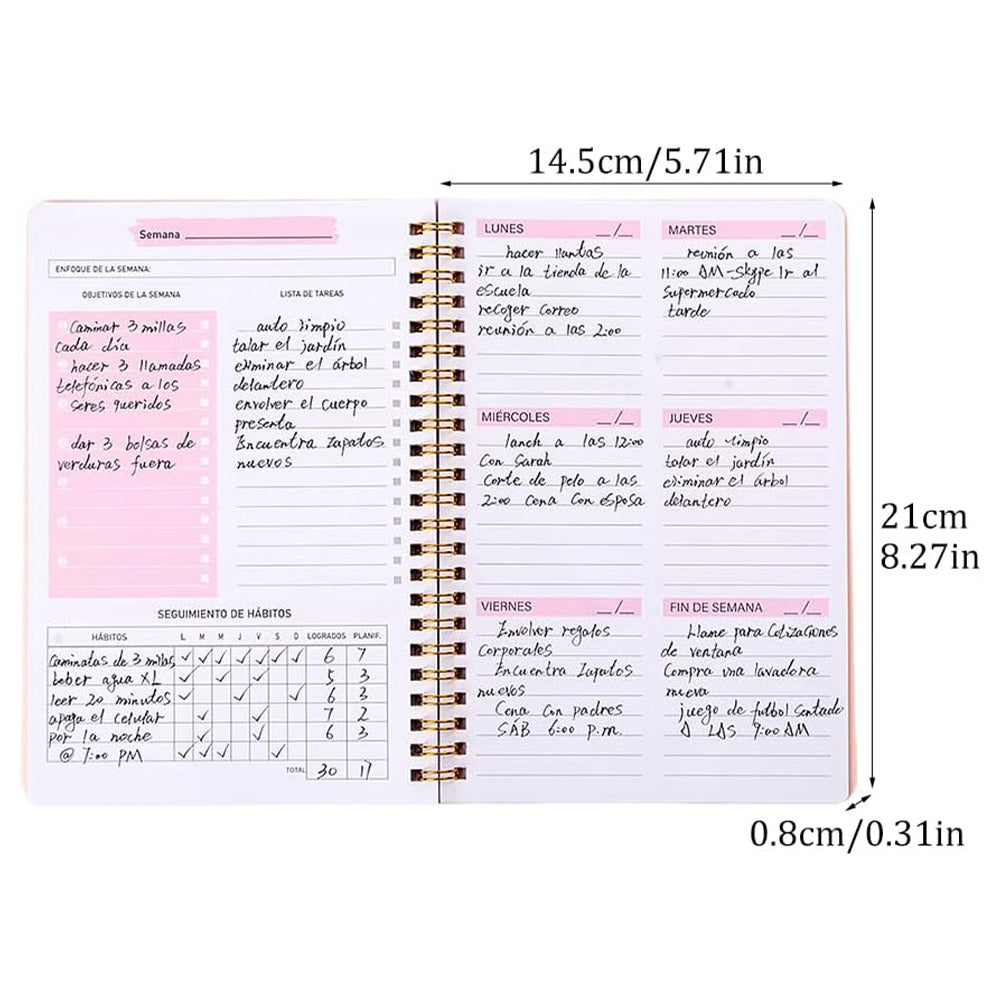 14.5cm/5.71in
Semana
ENFOQUE DE LA SEMANA:
OBJETIVOS DE LA SEMANA
Caminar 3 millas
cada día
hacer 3 llamadas
telefónicas a los
seres queridos
dar 3 bolsas de
verduras fuera
LISTA DE TAREAS
auto limpio
talar el jardín
eliminar el árbol
delantero
envolver el cuerpo
presenta
Encuentra zapatos
nuevos
SEGUIMIENTO DE HÁBITOS
HÁBITOS L M M J V S D LOGRADOS PLANIF.
Caminatas de 3 millas ✓ ✓ ✓ ✓ ✓ ✓ ✓ 6 7
beber agua XL ✓ ✓ ✓ 5 3
leer 20 minutos ✓ ✓ ✓ 6 3
apaga el celular ✓ ✓ 7 2
por la noche ✓ ✓ 6 3
@ 7:00 PM ✓ ✓ ✓ ✓
TOTAL 30 17
LUNES __/__
hacer llantas
ir a la tienda de la
escuela
recoger correo
reunión a las 2:00
MARTES __/__
reunión a las
11:00 AM-Skype Ir al
supermercado
tarde
MIÉRCOLES __/__
lanch a las 12:00
Con Sarah
Corte de pelo a las
2:00 Cena Con esposa
JUEVES __/__
auto limpio
talar el jardín
eliminar el árbol
delantero
VIERNES __/__
Envolver regalos
Corporales
Encuentra zapatos
nuevos
Cena Con padres
SÁB 6:00 p.m.
FIN DE SEMANA __/__
Llame para Cotizaciones
de ventana
Compra una lavadora
nueva
juego de futbol Sentado
A LAS 9:00 AM
21cm
8.27in
0.8cm/0.31in